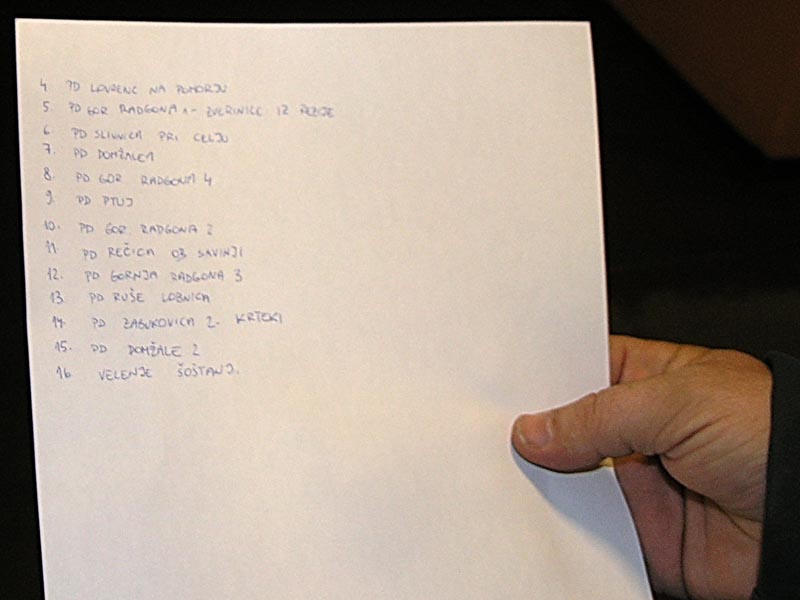 4 PD LOVRENC NA POHORJU
5. PD GOR RADGONA 1 - ZVERINICE IZ REZIJE
6. PD SLIVNICA PRI CELJU
7. PD DOMŽALE 1
8. PD GOR RADGONA 4
9. PD PTUJ
10. PD GOR RADGONA 2
11. PD REČICA OB SAVINJI
12. PD GORNJA RADGONA 3
13. PD RUŠE LOBNICA
14. PD ZABUKOVICA 2. KRTEKI
15. PD DOMŽALE 2
16 VELENJE ŠOŠTANJ.